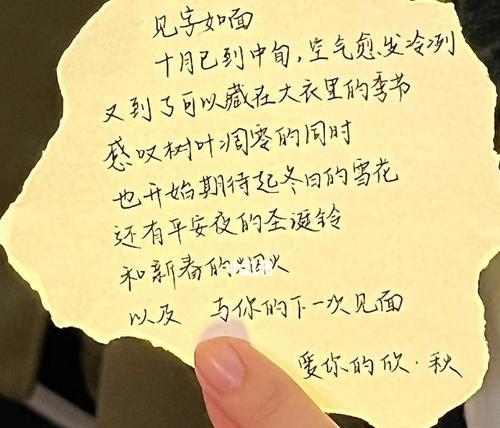 见字如面
十月已到中旬，空气愈发冷冽
又到了可以藏在大衣里的季节
感叹树叶凋零的同时
也开始期待起冬日的雪花
还有平安夜的圣诞铃
和新春的烟火
以及 与你的下一次见面
爱你的欣·秋